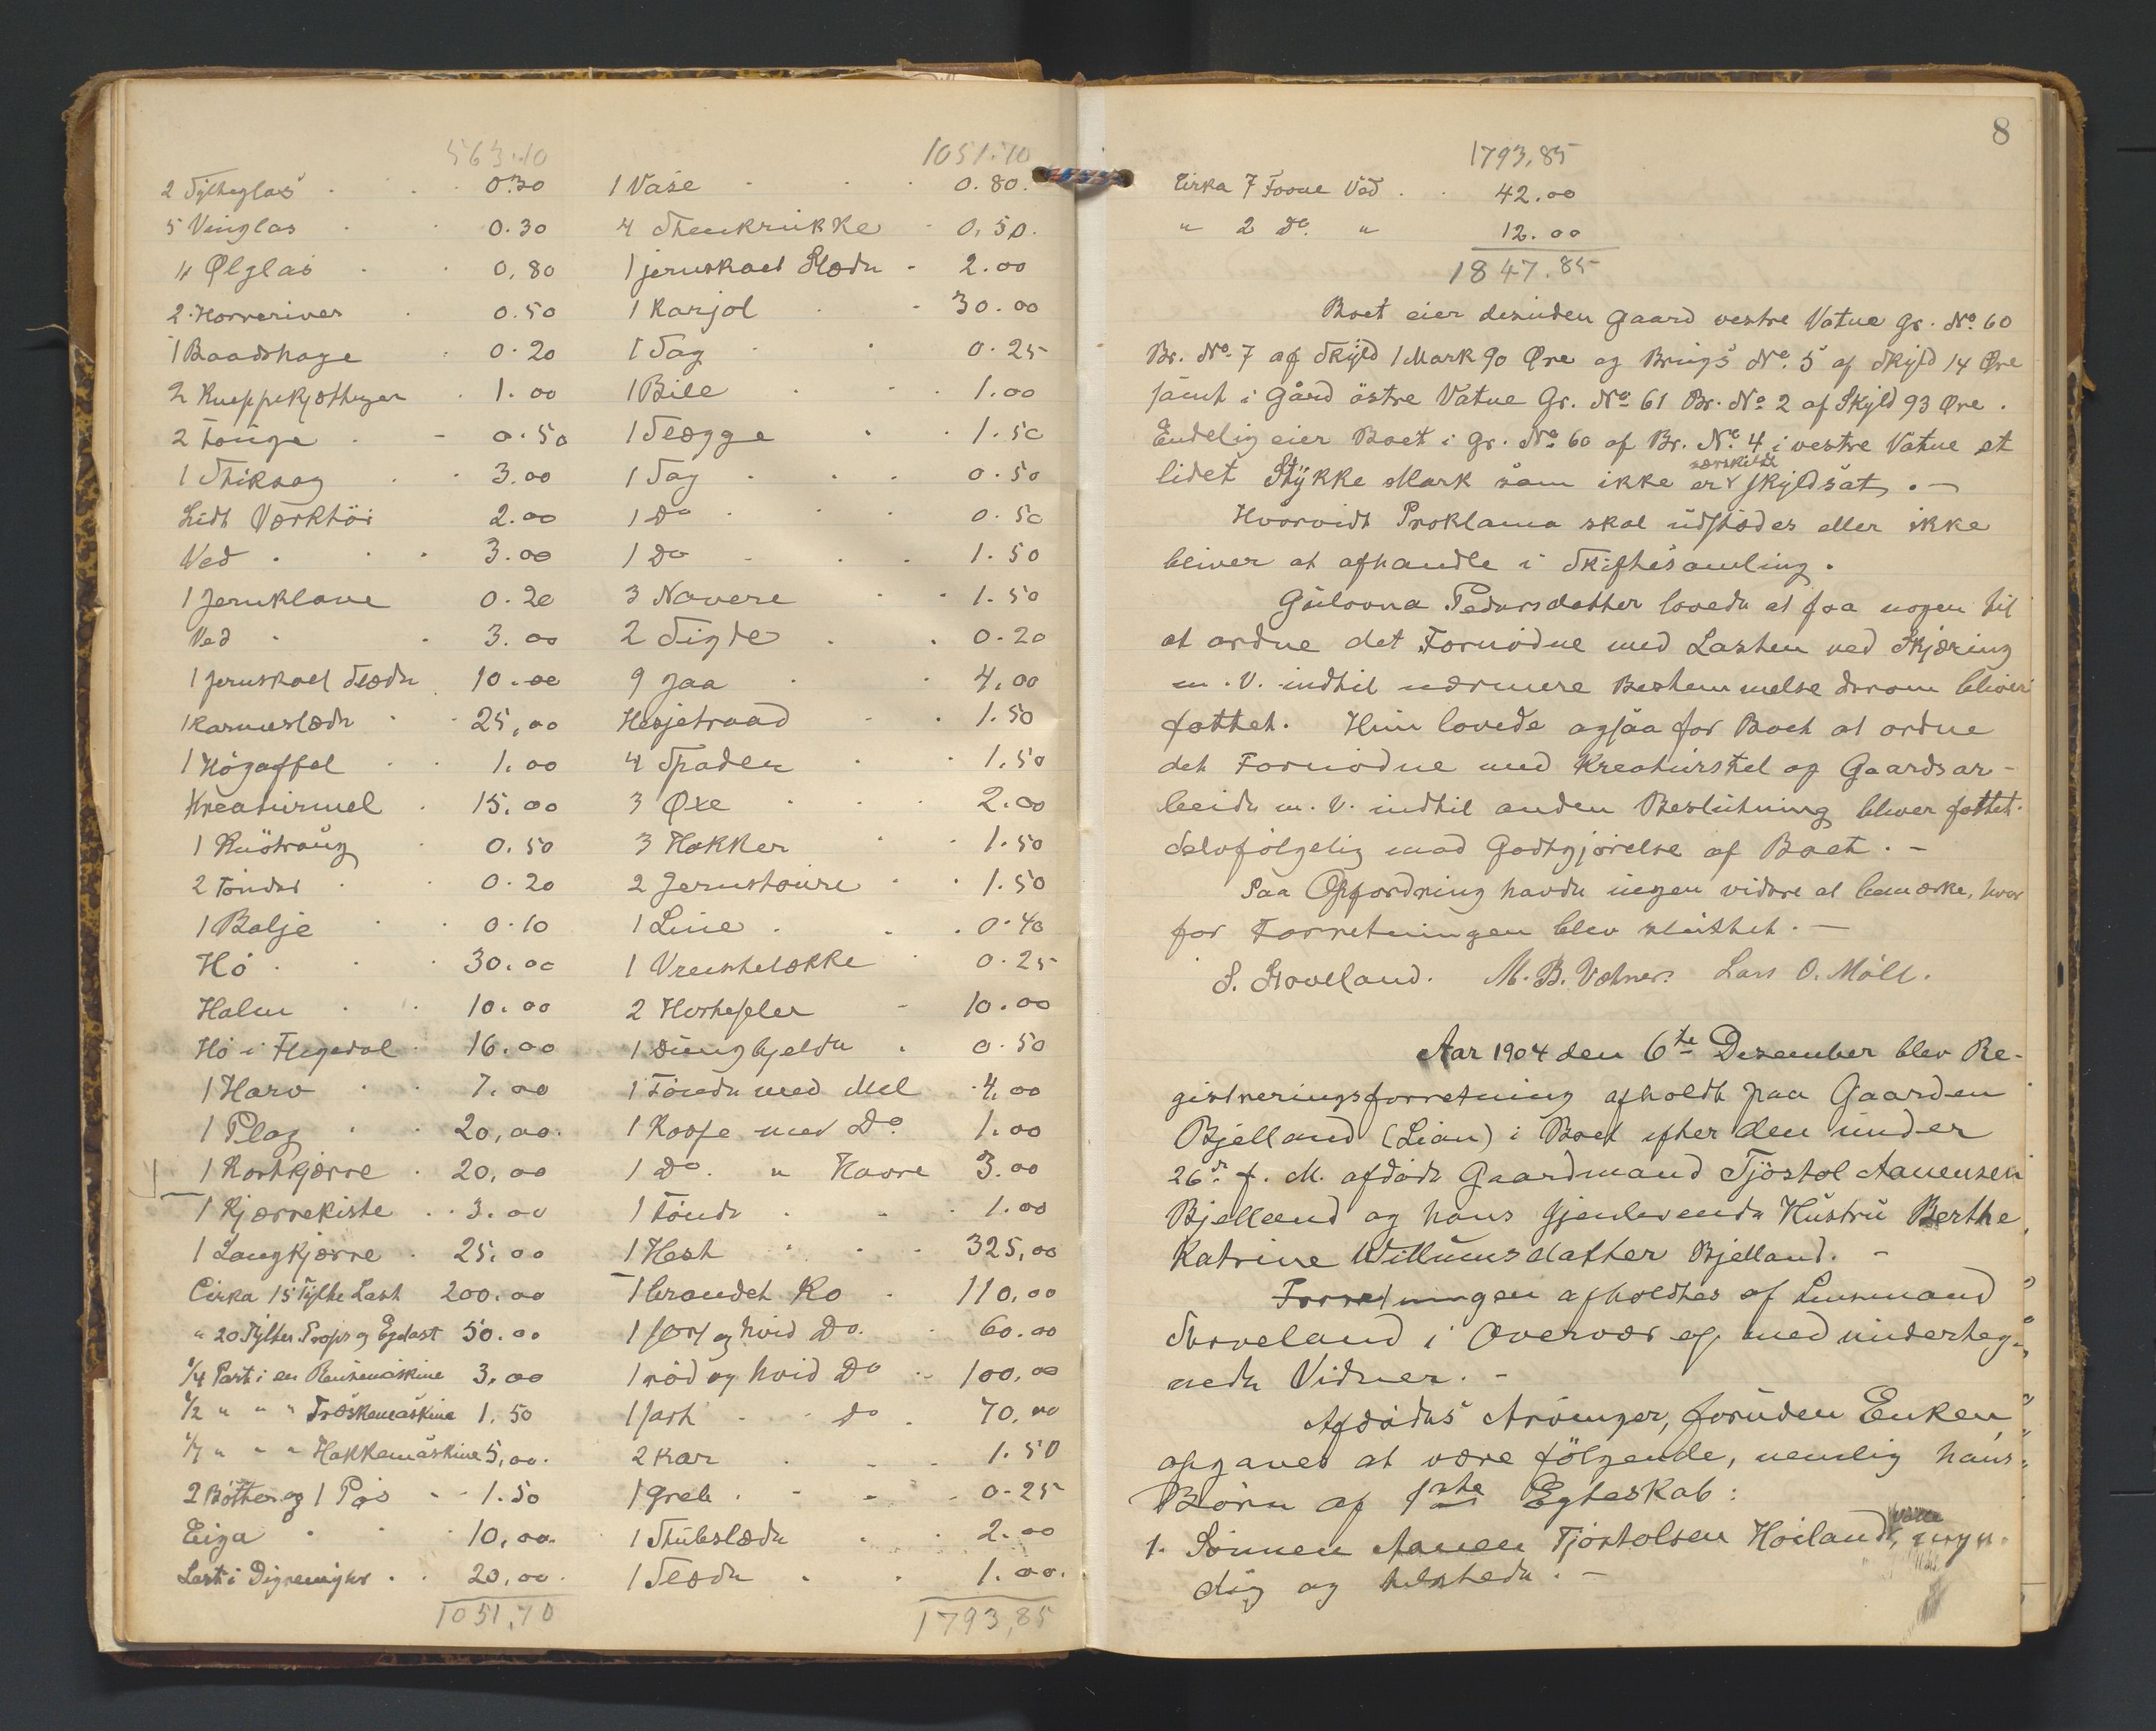 563.10
2 Sylteglas 0.30
5 Vinglas 0.30
4 Ølglas 0,80
2 Horveriver 0.50
1 Baadshage 0.20
2 1.00
2 Tönge 0.50
1 Stiksag 3.00
Lidt Værktöi 2.00
Ved 3.00
1 Jernklave 0.20
Ved 3.00
1 jernskoet Slæde 10.00
1 Karmslæde 25,00
1 Högaffel 1.00
Kreaturmel 15.00
1 0.50
2 Tönder 0.20
1 Balje 0.10
Hö 30.00
Halm 10.00
Hö i Flegedal 16.00
1 Harv 7.00
1 Plog 20,00
1 Kortkjærre 20,00
1 Kjærrekiste 3.00
1 Langkjærre 25.00
Cirka 15 Tylte Last 200.00
" 20 Tylter Props og Egelast 50.00
1/4 Part i en Rensemaskine 3,00
1/2 " " " Træskemaskine 1.50
1/7 " " " Hakkemaskine 5,00.
2 Bötter og 1 Pös 1.50
Eiga 10,00
Last i 20,00
1051,70
1051.70
1 Vase 0.80.
4 Stenkrukke 0.50.
1 jernskoet Slæde 2.00
1 Karjol 30.00
1 Sag 0.25
1 Bile 1.00
1 Slægge 1.50
1 Sag 0.50
1 Do 0.50
1 Do 1.50
3 Navere 1.50
2 Sigde 0.20
9 Jaa 4,00
Hesjetraad 1.50
4 Spader 1.50
3 Øxe 2.00
3 Hakker 1.50
2 Jernstaure 1.50
1 Line 0.40
1 0.25
2 10.00
1 0.50
1 Tönde med Mel 4,00
1 Kasse med Do 1.00
1 Do. " Havre 3.00
1 Tönde 1.00
1 Hest 325,00
1 brandet Ko 110,00
1 sort og hvid Do. 60.00
1 röd og hvid Do 100,00
1 sort Do 70.00
2 Kar 1.50
1 Greb 0.25
1 Stubslæde 2.00
1 Slæde 1.00.
1793,85
8
1793,85
Cirka 7 Favne Ved 42.00
" 2 Do. " 12.00
1847.85
Boet eier desuden Gaard vestre Vatne Gr. No 60
Br. No. 7 af Skyld 1 Mark 90 Øre og Brugs No. 5 af Skyld 14 Øre
samt i Gård östre Vatne Gr. No 61 Br. No 2 af Skyld 93 Øre.
Endelig eier Boet i Gr. No 60 af Br. No 4 i vestre Vatne et
særskildt
lidet Stykke Mark som ikke er skyldsat. —
Hvorvidt Proklama skal udstædes eller ikke
bliver at afhandle i Skiftesamling.
Gulovna Pedersdatter lovede at faa nogen til
at ordne det Fornödne med Lasten ved Skjæring
m.V. indtil nærmere Bestemmelse derom bliver
fattet. Hun lovede ogsaa for Boet at ordne
det Fornödne med Kreaturstel og Gaardsar-
beide m.V. indtil anden Beslutning bliver fattet.
selvfölgelig mod Godtgjörelse af Boet. —
Paa Opfordring havde ingen videre at bemærke, hvor
for Forretningen blev sluttet. —
S. Skoveland. M.B. Lars O. Möll.
Aar 1904 den 6te Desember blev Re-
gistreringsforretning afholdt paa Gaarden
Bjelland (Lian) i Boet efter den under
26de f. M. afdöde Gaardmand Tjöstol Aanensen
Bjelland og hans gjenlevende Hustru Berthe
Katrine Willumsdatter Bjelland. —
Forretningen afholdtes af Lensmand
Skoveland i Overvær af medunderteg-
nede Vidner. —
Afdödes Arvinger, foruden Enken,
opgaves at være fölgende, nemlig hans
Börn af 1ste Egteskab:
1. Sönnen Aanen Tjöstolsen Höiland, myn-
dig og tilstede. —